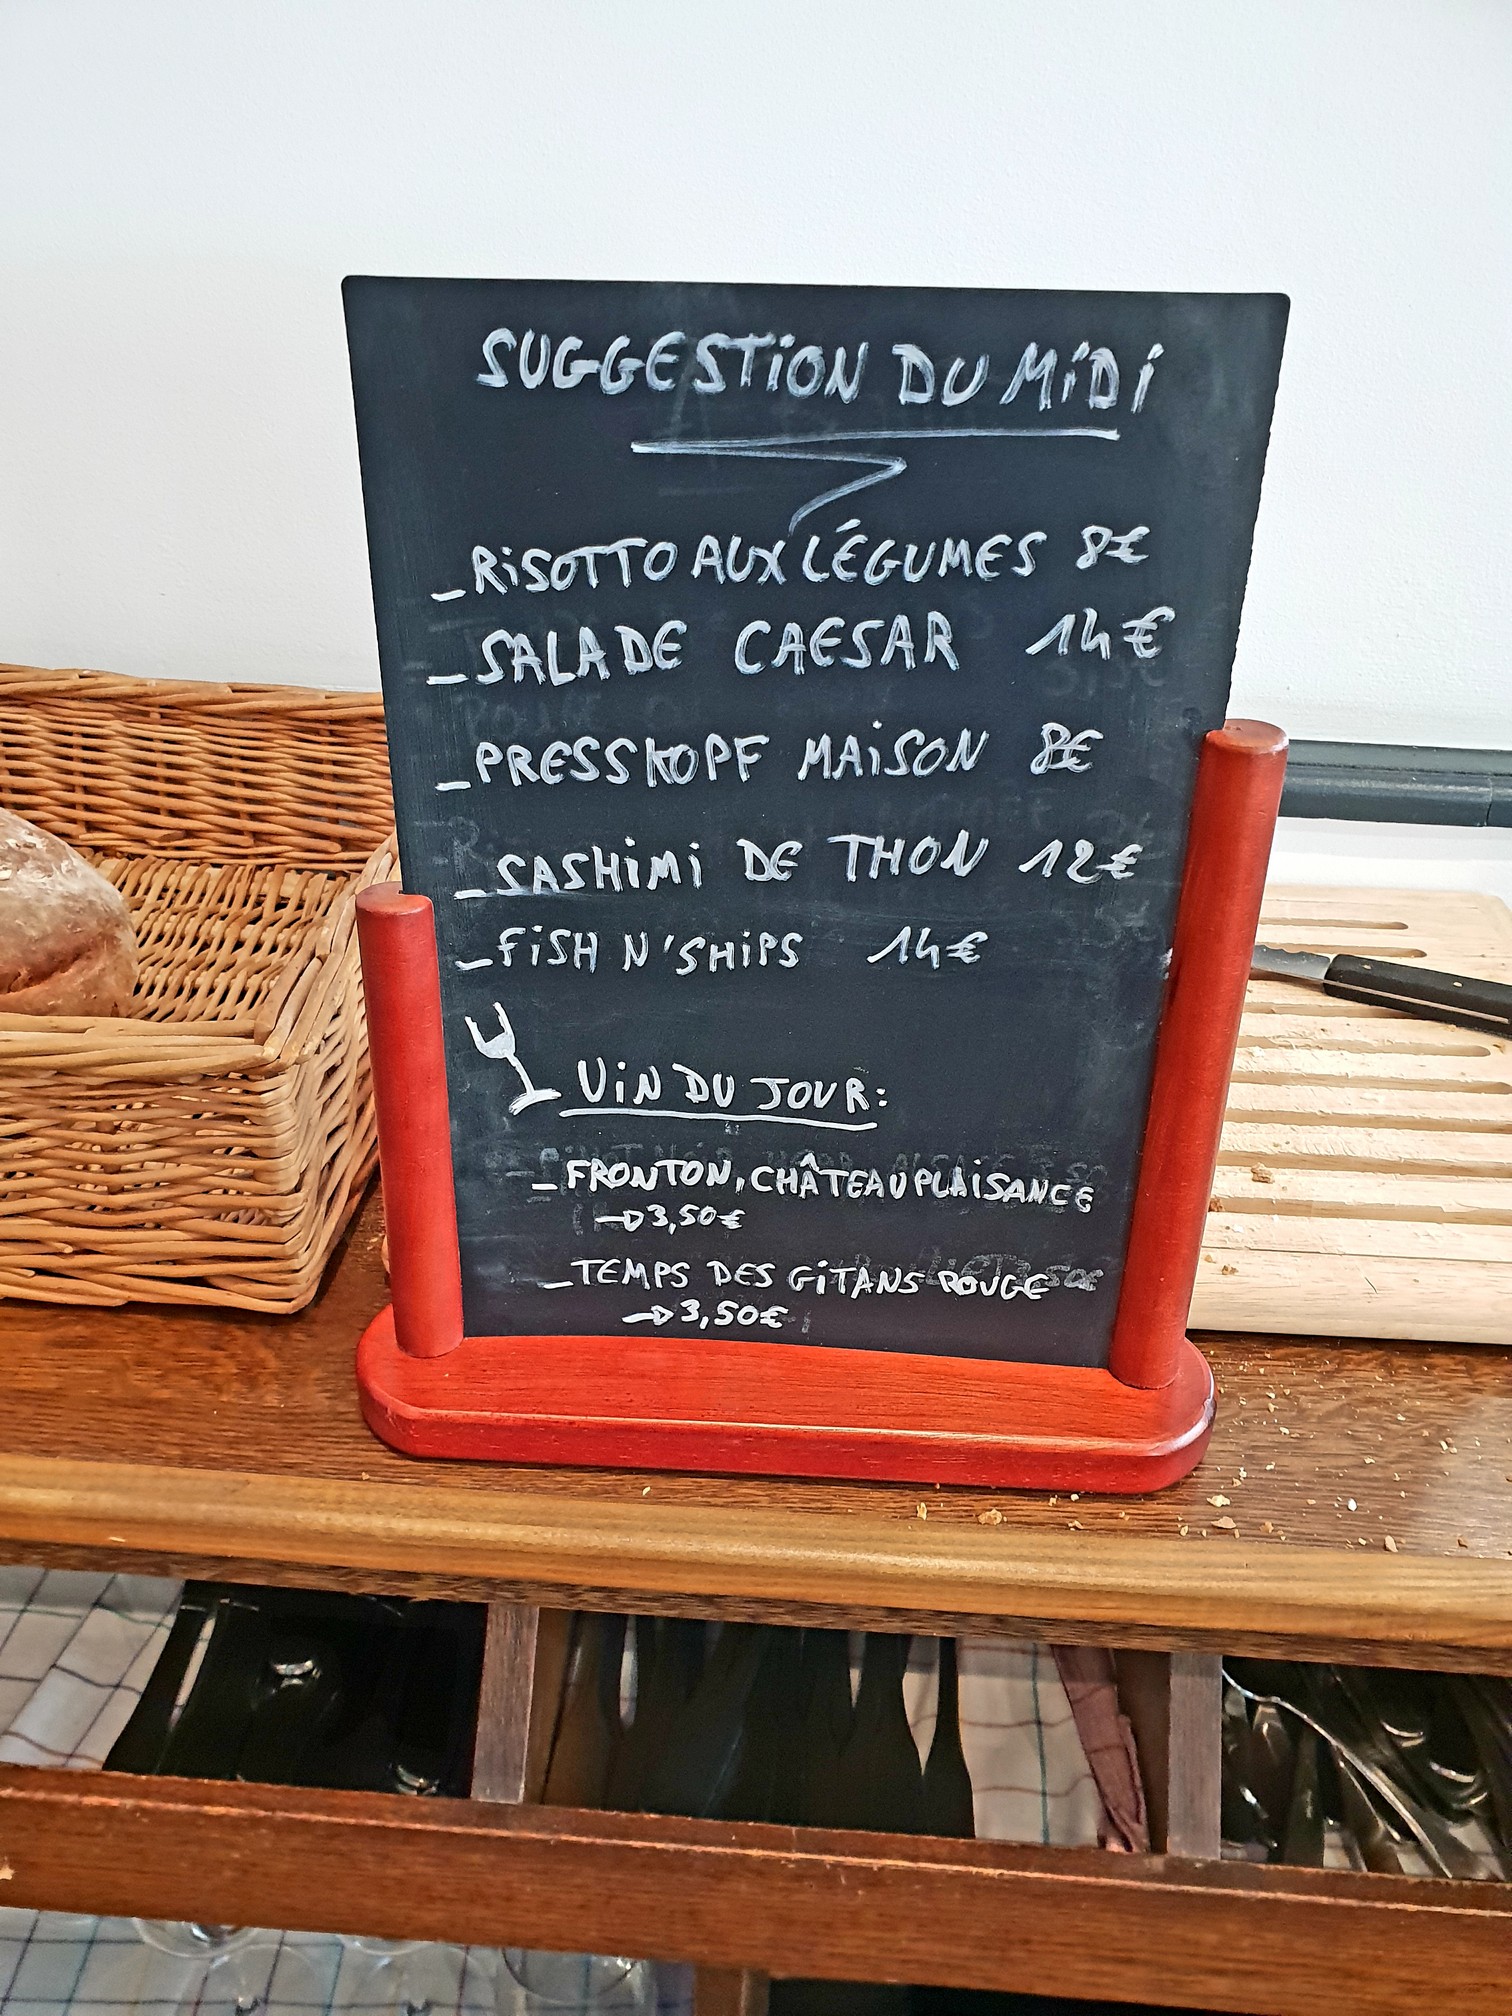 SUGGESTION DU MIDI
_RISOTTO AUX LÉGUMES 8€
_SALADE CAESAR 14€
_PRESSKOPF MAISON 8€
_SASHIMI DE THON 12€
_FISH N'SHIPS 14€
VIN DU JOUR:
_FRONTON, CHÂTEAU PLAISANCE
→3,50€
_TEMPS DES GITANS ROUGE
→3,50€